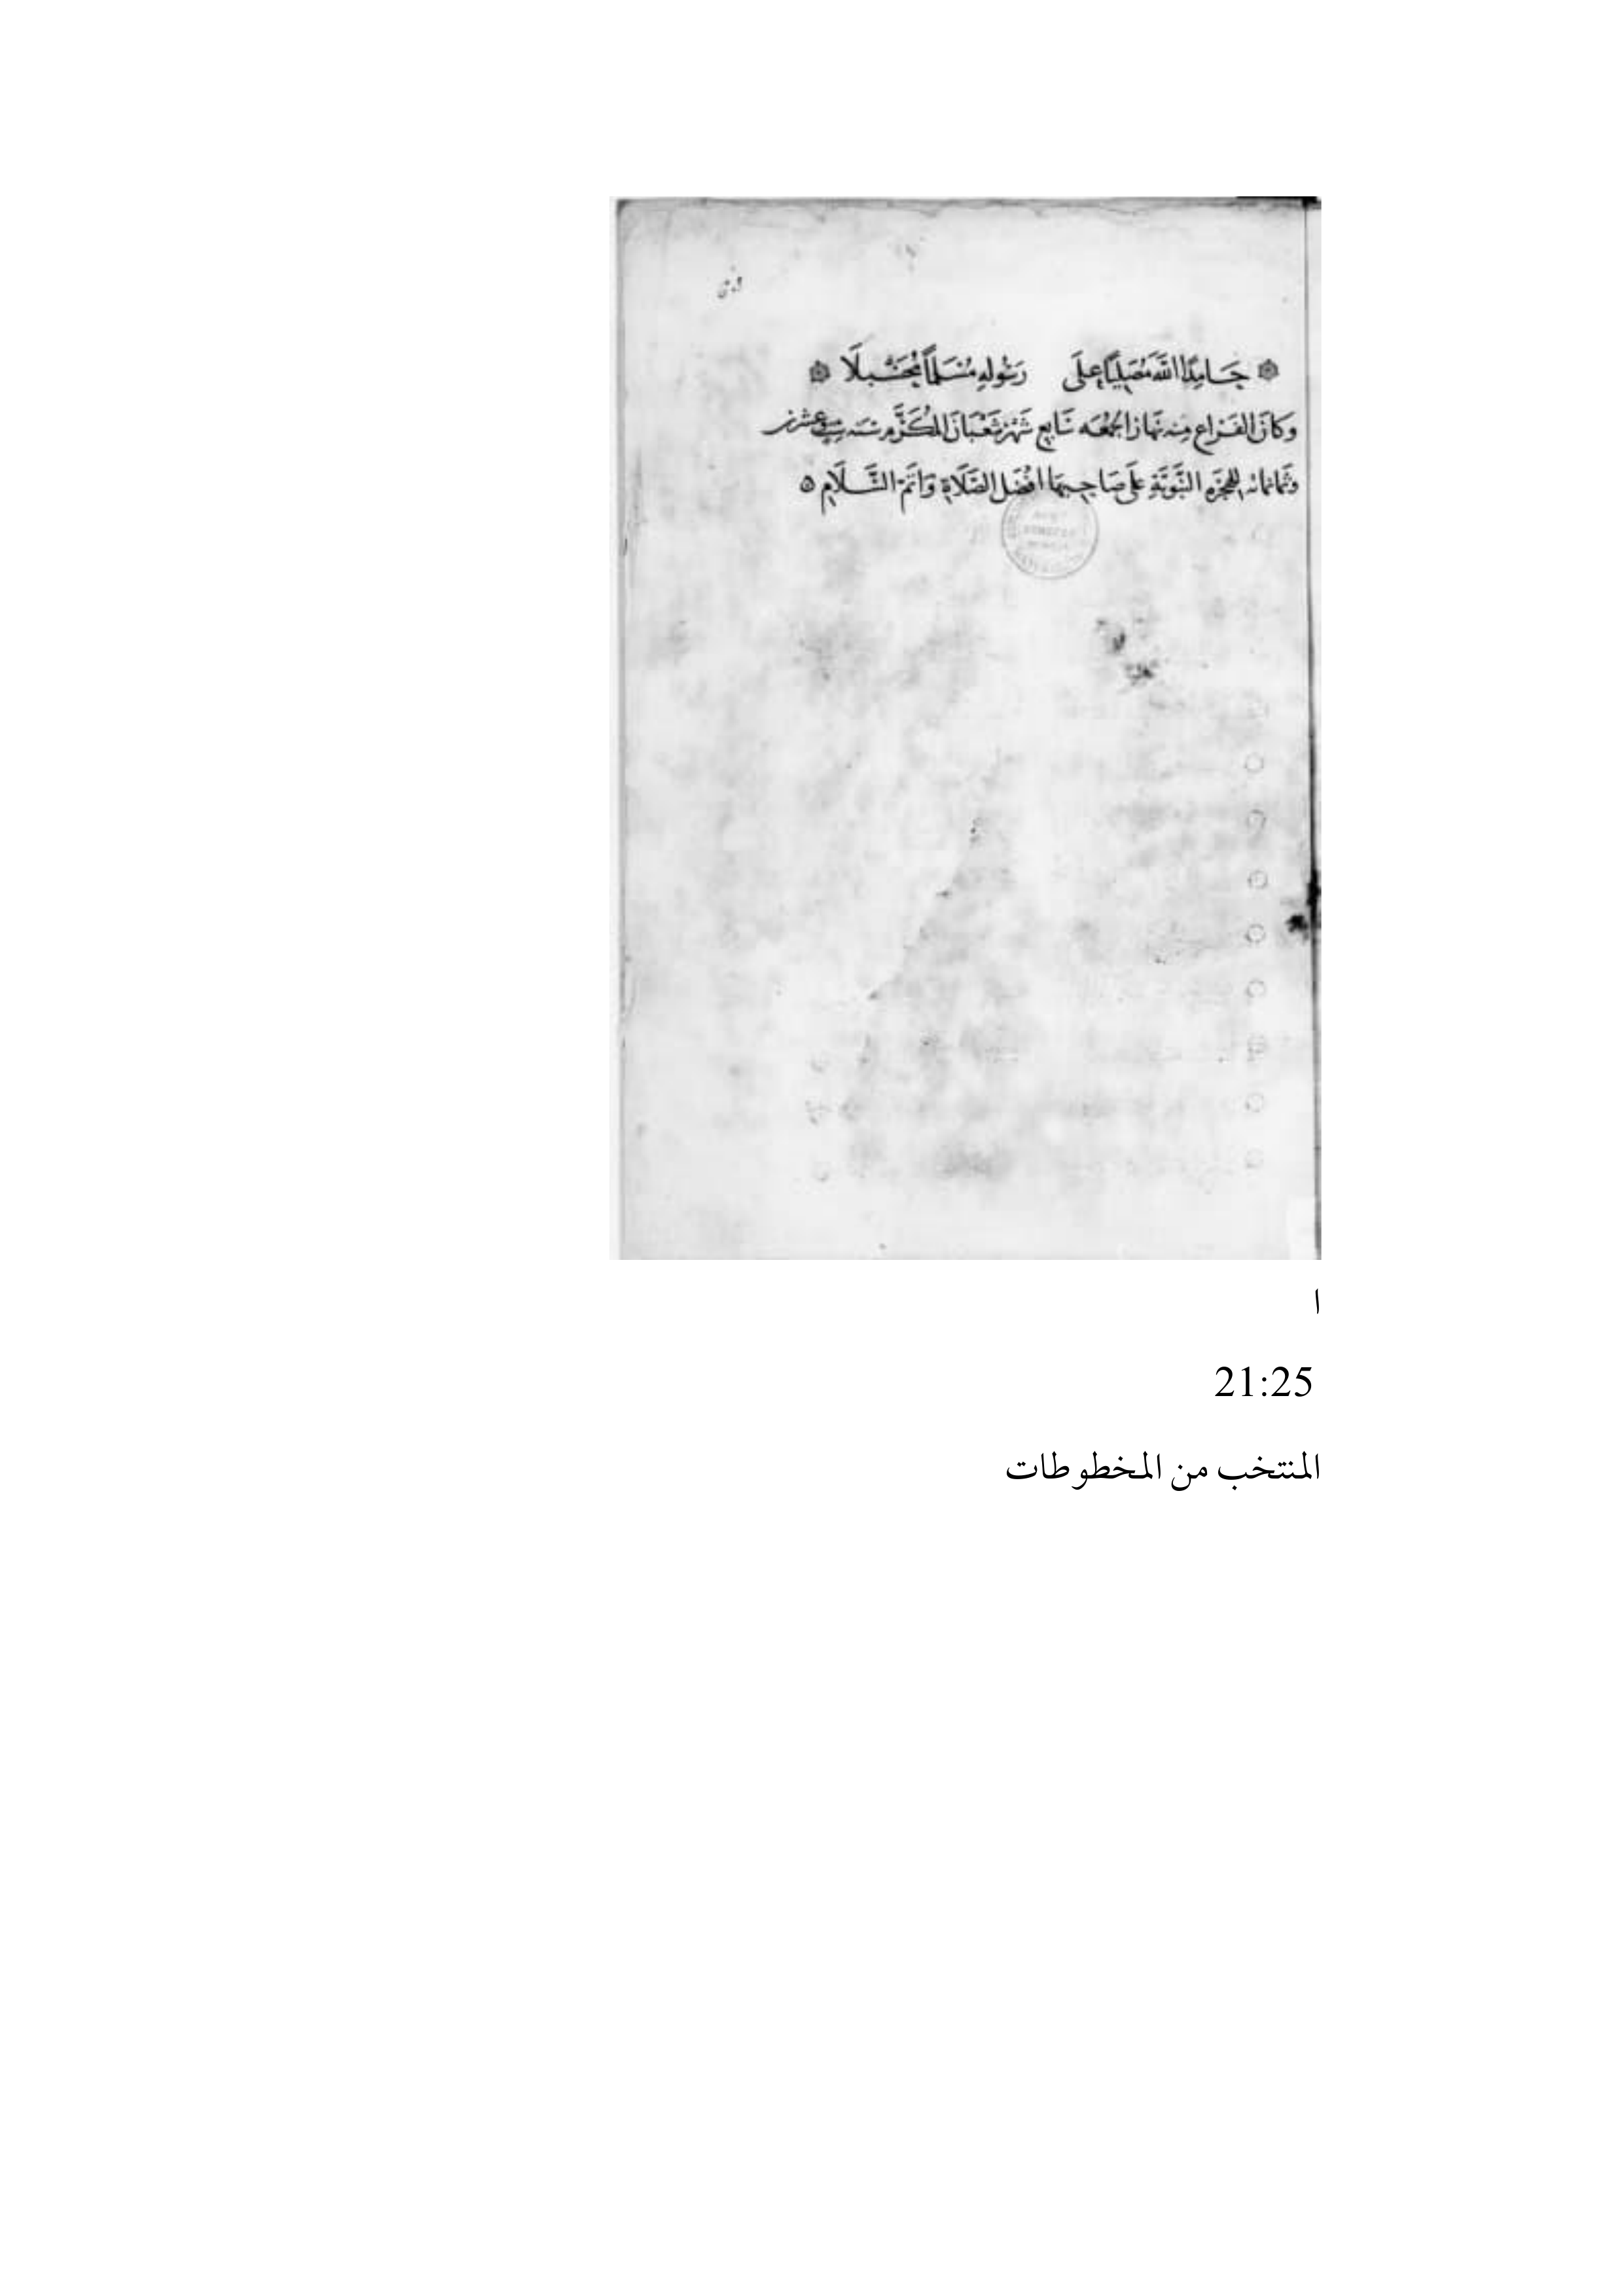 حَامِدًا اللَّهَ مُصَلِّيًا عَلَى رَسُولِهِ مُسَلِّمًا
وَكَانَ الفَرَاغ مِنه نَهَار الجُمعَه سَابِع شَهْر شَعْبَان المُكَرَّم سنه عشرين
وثمانمائه للهجره النَّبَوِيَّةِ عَلَى صَاحِبِهَا افْضَل الصَّلَاةِ وَاتَمّ السَّلَامِ
ا
21:25
المنتخب من المخطوطات